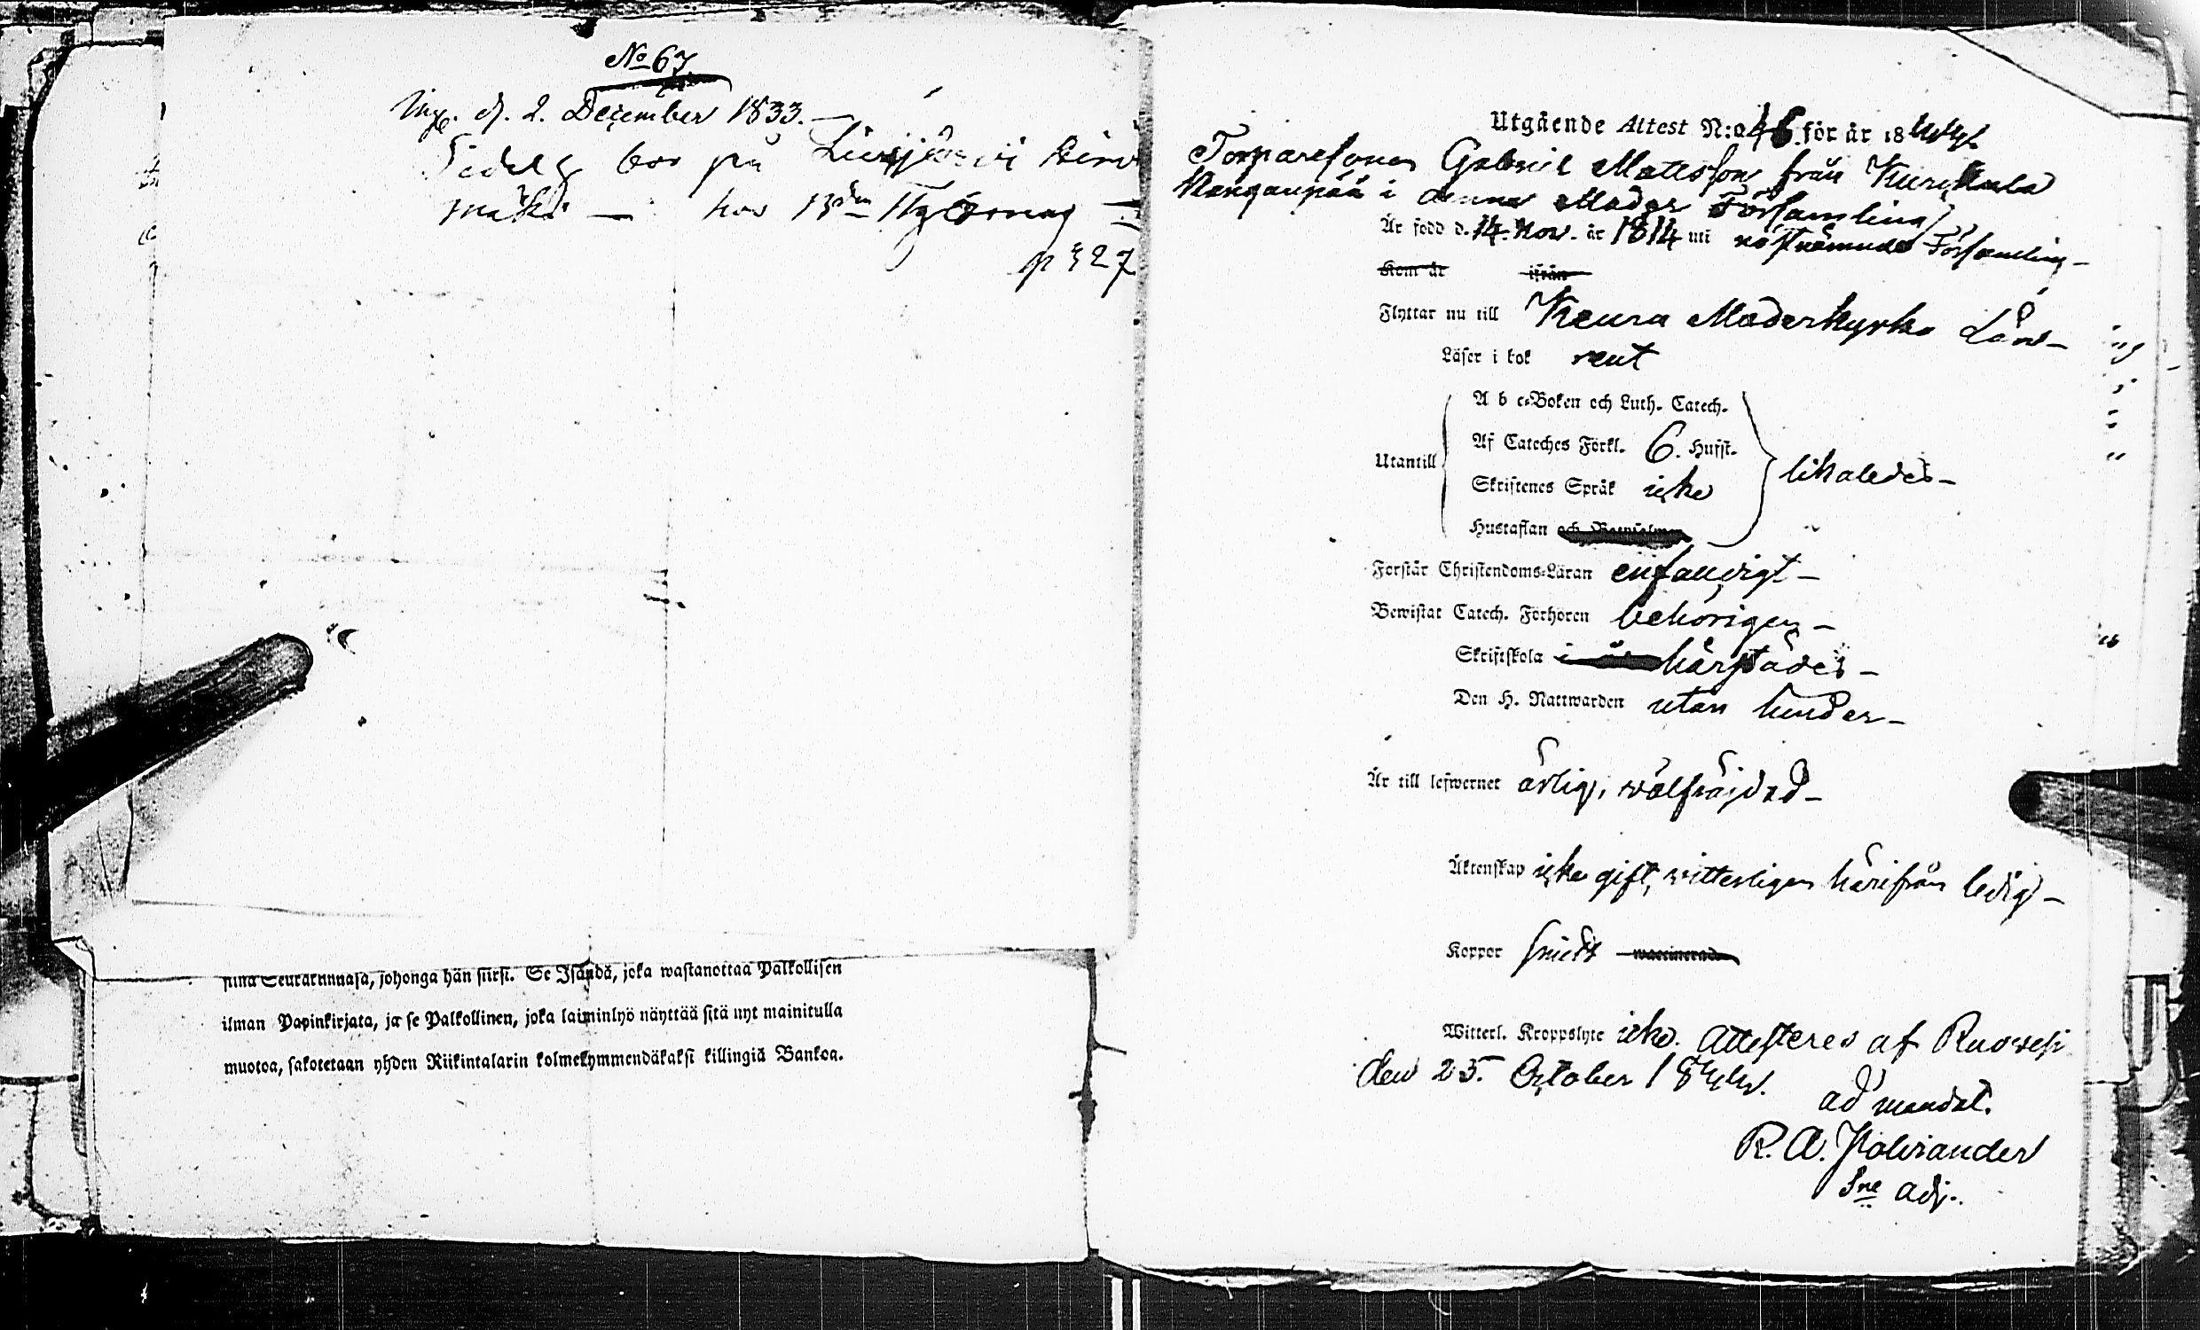 No 67
Ing. d. 2. December 1833.
bor på
p 327
siinä Seurakunnasa, johonga hän siirsi. Se Isändä, joka wastanottaa Palkollisen
ilman Papinkirjata, ja se Palkollinen, joka laiminlyö näyttää sitä nyt mainitulla
muotoa, sakotetaan yhden Riikintalarin kolmekymmendäkaksi killingiä Bankoa.
Utgående Attest N:o 46 för år 1844
Torparesonen Gabriel Mattsson från
i denna Moder Församling
Är född d. 14. Nov. år 1814 uti näst nämnde Församling -
Kom år ifrån
Flyttar nu till Keuru Moderkyrko
Läser i bok rent
A b c-Boken och Luth. Catech.
Utantill Af Cateches Förkl. 6. Hufst. likaledes -
Skriftenes Språk icke
Hustaflan
Förstår Christendoms-Läran enfaldigt -
Bewistat Catech. Förhören behörigen -
Skriftskola härstädes -
Den H. Nattwarden utan hinder -
Är till lefwernet ärlig, wälfräjdad -
Äktenskap icke gift, witterligen härifrån ledig -
Koppor haft waccinerad
Witterl. Kroppslyte icke. Attesteres af Ruowesi
den 25. October 1844.
ad mandat.
R. A. Polviander
adj.